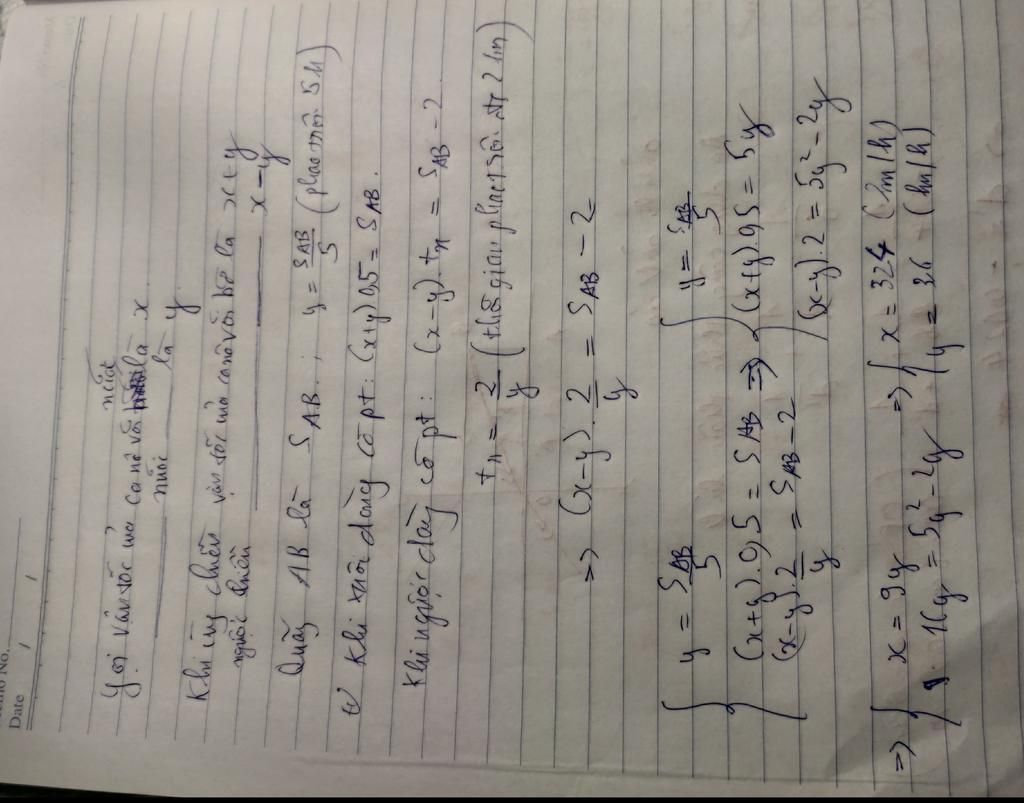 Memo No.
Date / /
Gọi vận tốc của ca nô với nước là x
nước là y
Khi cùng chiều vận tốc của ca nô với bờ là x+y
ngược chiều x-y
Quãng AB là S_AB ; y = S_AB/5 (phao trôi 5h)
Khi xuôi dòng có pt: (x+y)0,5 = S_AB.
Khi ngược dòng có pt: (x-y).t_n = S_AB - 2
t_n = 2/y (thời gian phao trôi đc 2 km)
=> (x-y).2/y = S_AB - 2
{ y = S_AB/5 { y = S_AB/5
(x+y).0,5 = S_AB => (x+y).0,5 = 5y
(x-y).2/y = S_AB - 2 (x-y).2 = 5y² - 2y
=> { x = 9y => { x = 32,4 (km/h)
16y = 5y² - 2y y = 3,6 (km/h)